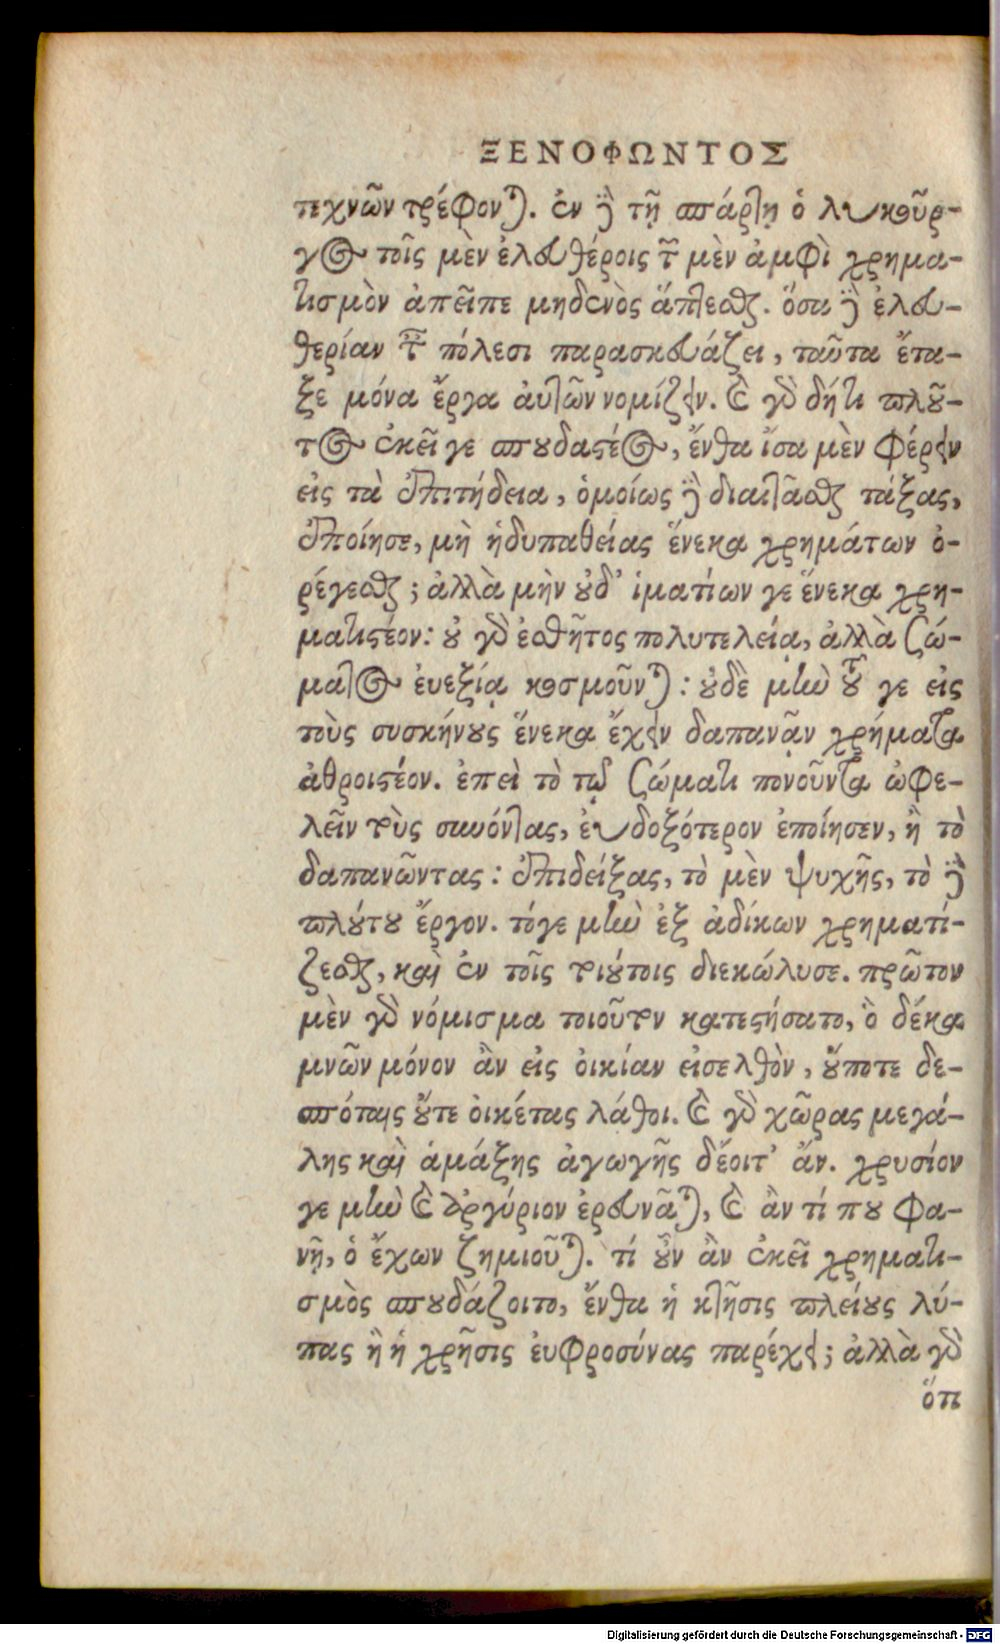 ΞΕΝΟΦΩΝΤΟΣ
τεχνῶν τρέφονται. ἐν δὲ τῇ σπάρτῃ ὁ λυκοῦρ-
γος τοῖς μὲν ἐλευθέροις τῶν μὲν ἀμφὶ χρημα-
τισμὸν ἀπεῖπε μηδενὸς ἅπτεσθαι. ὅσα δὲ ἐλευ-
θερίαν ταῖς πόλεσι παρασκευάζει, ταῦτα ἔτα-
ξε μόνα ἔργα αὐτῶν νομίζειν. καὶ γὰρ δήτι πλοῦ-
τος ἐκεῖ γε σπουδαστέος, ἔνθα ἴσα μὲν φέρειν
εἰς τὰ ἐπιτήδεια, ὁμοίως δὲ διαιτᾶσθαι τάξας,
ἐποίησε, μὴ ἡδυπαθείας ἕνεκα χρημάτων ὀ-
ρέγεσθαι; ἀλλὰ μὴν οὐδ' ἱματίων γε ἕνεκα χρη-
ματιστέον: οὐ γὰρ ἐσθῆτος πολυτελείᾳ, ἀλλὰ σώ-
ματος ἐυεξίᾳ κοσμοῦνται: οὐδὲ μὴν τοῦ γε εἰς
τοὺς συσκήνους ἕνεκα ἔχειν δαπανᾷν χρήματα
ἀθροιστέον. ἐπεὶ τὸ τῷ σώματι πονοῦντα ὠφε-
λεῖν τοὺς συνόντας, ἐυδοξότερον ἐποίησεν, ἢ τὸ
δαπανῶντας: ἐπιδείξας, τὸ μὲν ψυχῆς, τὸ δὲ
πλούτου ἔργον. τόγε μὴν ἐξ ἀδίκων χρηματί-
ζεσθαι, καὶ ἐν τοῖς τοιούτοις διεκώλυσε. πρῶτον
μὲν γὰρ νόμισμα τοιοῦτον κατεστήσατο, ὃ δέκα
μνῶν μόνον ἂν εἰς οἰκίαν εἰσελθὸν, οὔποτε δε-
σπόταις οὔτε οἰκέτας λάθοι. καὶ γὰρ χῶρας μεγά-
λης καὶ ἁμάξης ἀγωγῆς δέοιτ' ἄν. χρυσίον
γε μὴν καὶ ἀργύριον ἐρευνᾶται, καὶ ἂν τί που φα-
νῇ, ὁ ἔχων ζημιοῦται. τί οὖν ἂν ἐκεῖ χρηματι-
σμὸς σπουδάζοιτο, ἔνθα ἡ κτῆσις πλείους λύ-
πας ἢ ἡ χρῆσις ἐυφροσύνας παρέχει; ἀλλὰ γὰρ
ὅτι
Digitalisierung gefördert durch die Deutsche Forschungsgemeinschaft - DFG